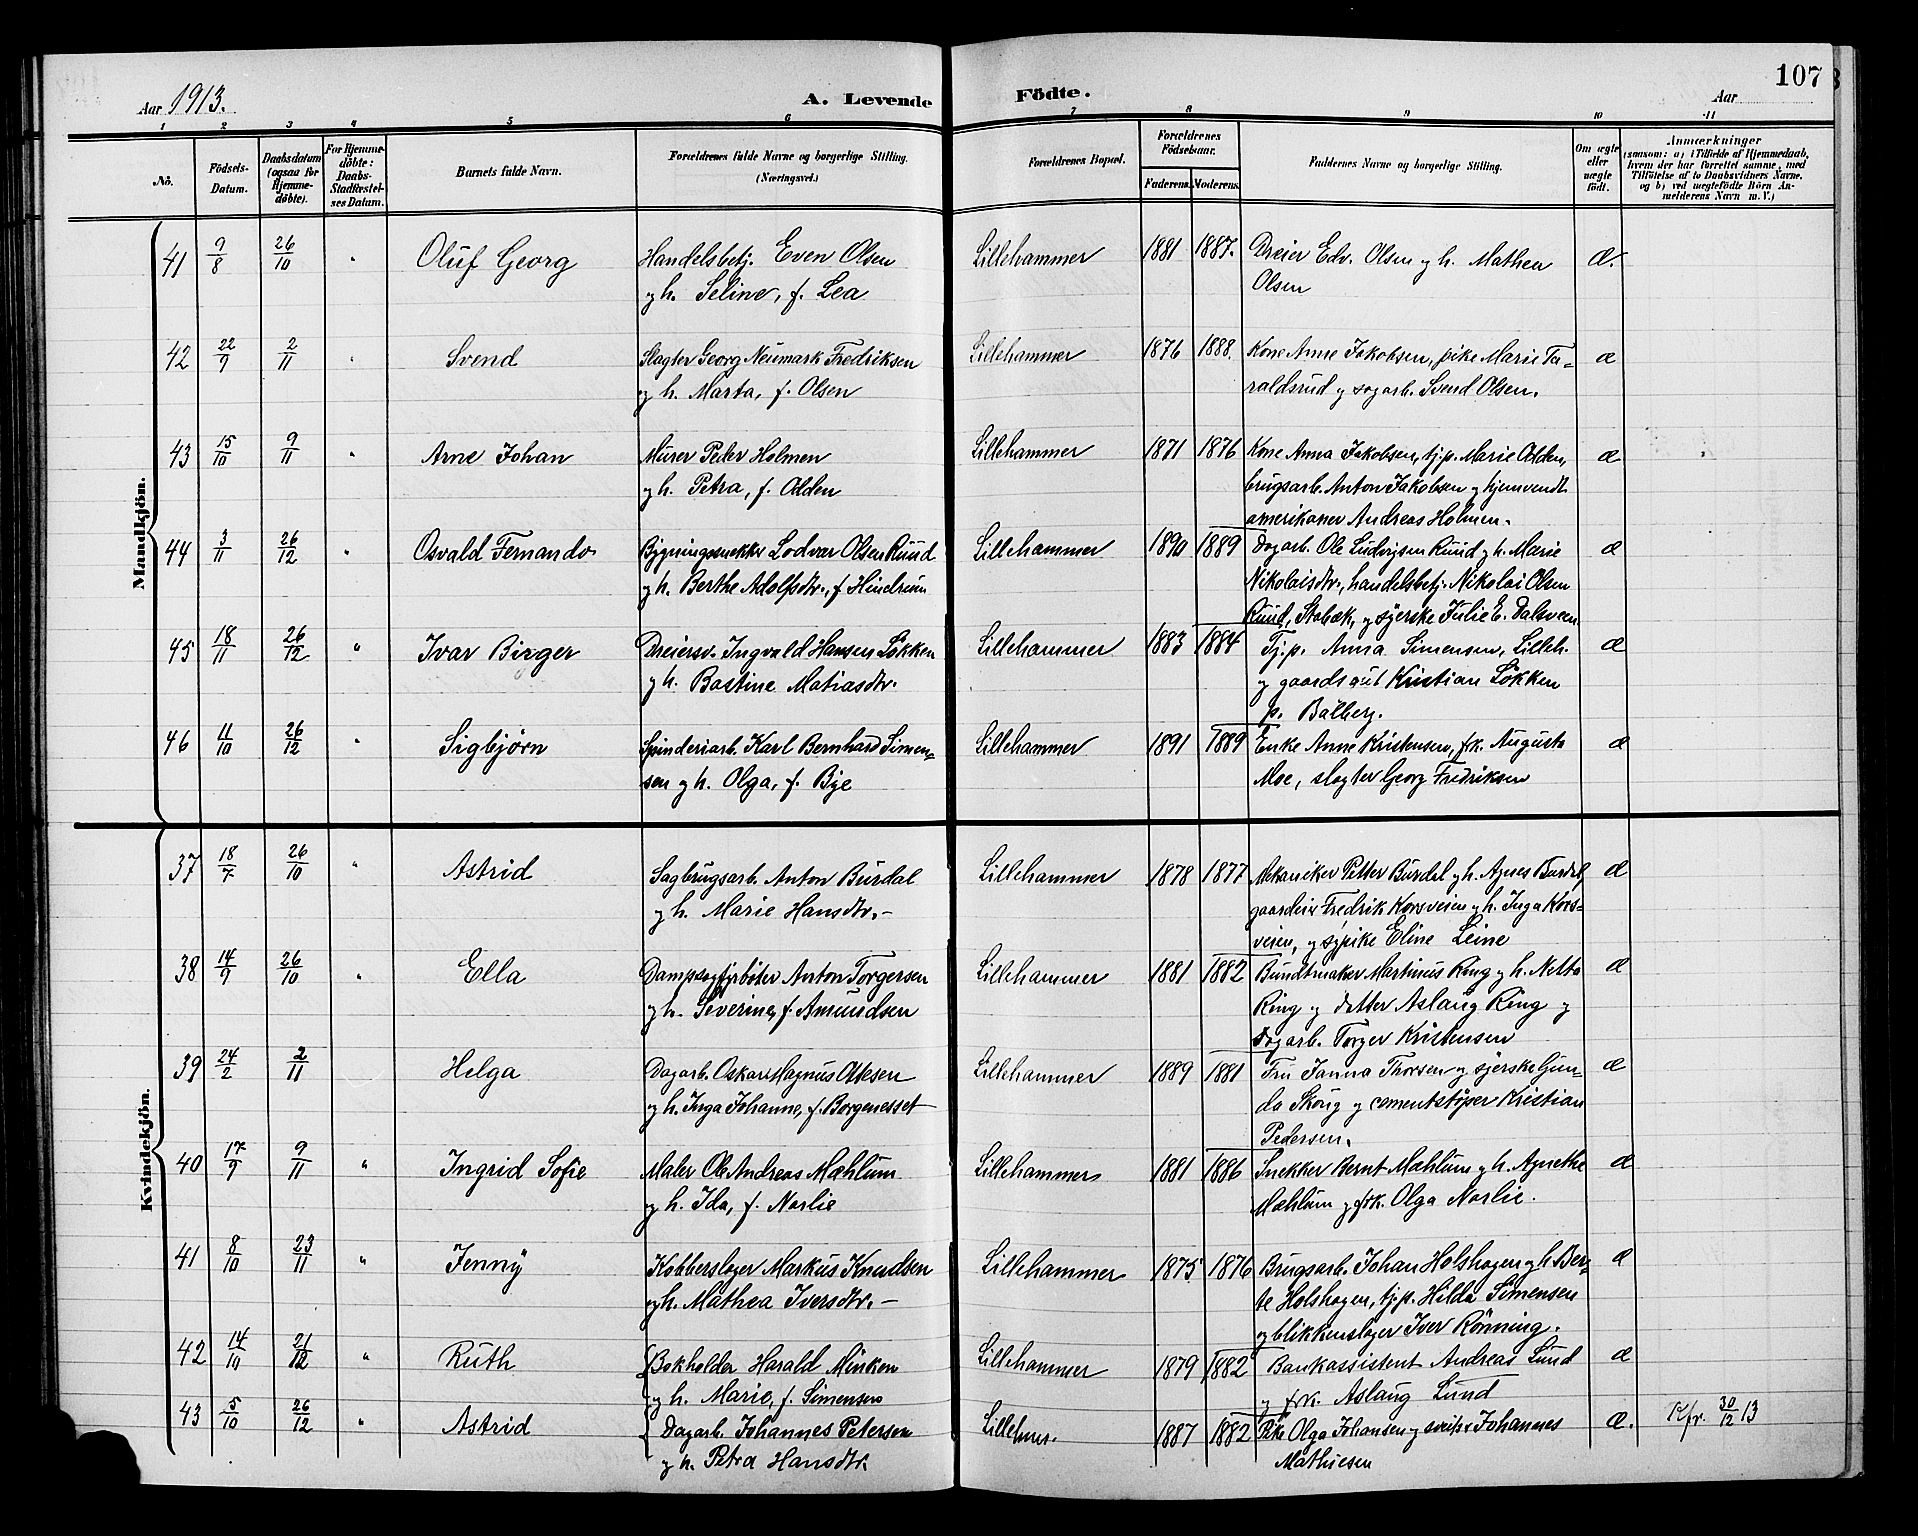 Aar 1913. A. Levende Födte. Aar 107
1 2 3 4 5 6 7 8 9 10 11
No. Födsels-Datum. Daabsdatum (ogsaa for Hjemme-döbte). For Hjemme-döbte: Daabs-Stadfæstel-ses Datum. Barnets fulde Navn. Forældrenes fulde Navne og borgerlige Stilling. (Næringsvei.) Forældrenes Bopæl. Forældrenes Födselsaar. Faderens. Moderens. Faddernes Navne og borgerlige Stilling. Om ægte eller uægte født. Anmærkninger
(saasom: a) i Tilfælde af Hjemmedaab, hvem der har forrettet samme, med Tilföielse af to Daabsvidners Navne, og b) ved uægtefödte Börn An-melderens Navn m. V.)
Mandkjön.
41 9/8 26/10 " Oluf Georg Handelsbetj. Even Olsen Lillehammer 1881 1887. Dreier Edv. Olsen og h. Mathea æ.
og h. Seline, f. Lea Olsen
42 22/9 2/11 " Svend Slagter Georg Neumark Fredriksen Lillehammer 1876 1888. Kone Anne Jakobsen, pike Marie Ta- æ
og h. Marta, f. Olsen raldsrud og sagarb. Svend Olsen.
43 15/10 9/11 " Arne Johan Murer Peder Holmen Lillehammer 1871 1876 Kone Anna Jakobsen, tj.p. Marie Odden, æ
og h. Petra, f. Odden brugsarb. Anton Jakobsen og hjemvendt
amerikaner Andreas Holmen.
44 3/11 26/12 " Osvald Fernando Bygningssnekker Lodvar Olsen Ruud Lillehammer 1890 1889 Dagarb. Ole Ludvigsen Ruud og h. Marie æ
og h. Berthe Adolfsdtr., f. Hindrum Nikolaisdtr., handelsbetj. Nikolai Olsen
Ruud, Stabæk, og syerske Julie E. Dalsveen
45 18/11 26/12 " Ivar Birger Dreiersv. Ingvald Hansen Løkken Lillehammer 1883 1884 Tj.p. Anna Simensen, Lilleh. æ
og h. Bastine Matiasdtr. og gaardsgut Kristian Løkken
p. Balberg.
46 11/10 26/12 " Sigbjørn Spinderiarb. Karl Bernhard Simen- Lillehammer 1891 1889 Enke Anne Kristensen, frk. Augusta æ
sen og h. Olga, f. Bye Moe, slagter Georg Fredriksen
Kvindekjön.
37 18/7 26/10 " Astrid Sagbrugsarb. Anton Burdal Lillehammer 1878 1877 Mekaniker Petter Burdal og h. Agnes Burdal æ
og h. Marie Hansdtr. – gaardeier Fredrik Korsveien og h. Inga Kors-
veien, og sypike Eline Leine
38 14/9 26/10 " Ella Dampsagfyrbøter Anton Torgersen Lillehammer 1881 1882 Buntmaker Martinus Ring og h. Netta æ
og h. Severine, f. Amundsen Ring og datter Aslaug Ring og
dagarb. Torger Kristensen
39 24/2 2/11 Helga Dagarb. Oskar Magnus Olsen Lillehammer 1889 1881 Fru Janna Thorsen og syerske Gun- æ
og h. Inga Johanne, f. Borgenesset da Skoug og cementstøper Kristian
Pedersen.
40 17/9 9/11 " Ingrid Sofie Maler Ole Andreas Mæhlum Lillehammer 1881 1886 Snekker Bernt Mæhlum og h. Agnethe æ
og h. Ida, f. Narlie Mæhlum og frk. Olga Narlie.
41 8/10 23/11 " Jenny Kobberslager Markus Knudsen Lillehammer 1875 1876 Brugsarb. Johan Holshagen og h. Ber- æ
og h. Mathea Iversdtr. – te Holshagen, tj.p. Hilda Simensen
og blikkenslager Iver Rønning.
42 14/10 21/12 " Ruth Bokholder Harald Minken Lillehammer 1879 1882 Bankassistent Andreas Lund æ
og h. Marie, f. Simensen og frk. Aslaug Lund
43 5/10 26/12 " Astrid Dagarb. Johannes Petersen Lillehmr. 1887 1882 Pike Olga Johansen og Johannes æ. Kfr. 30/12 13
og h. Petra Hansdtr. Mathiesen